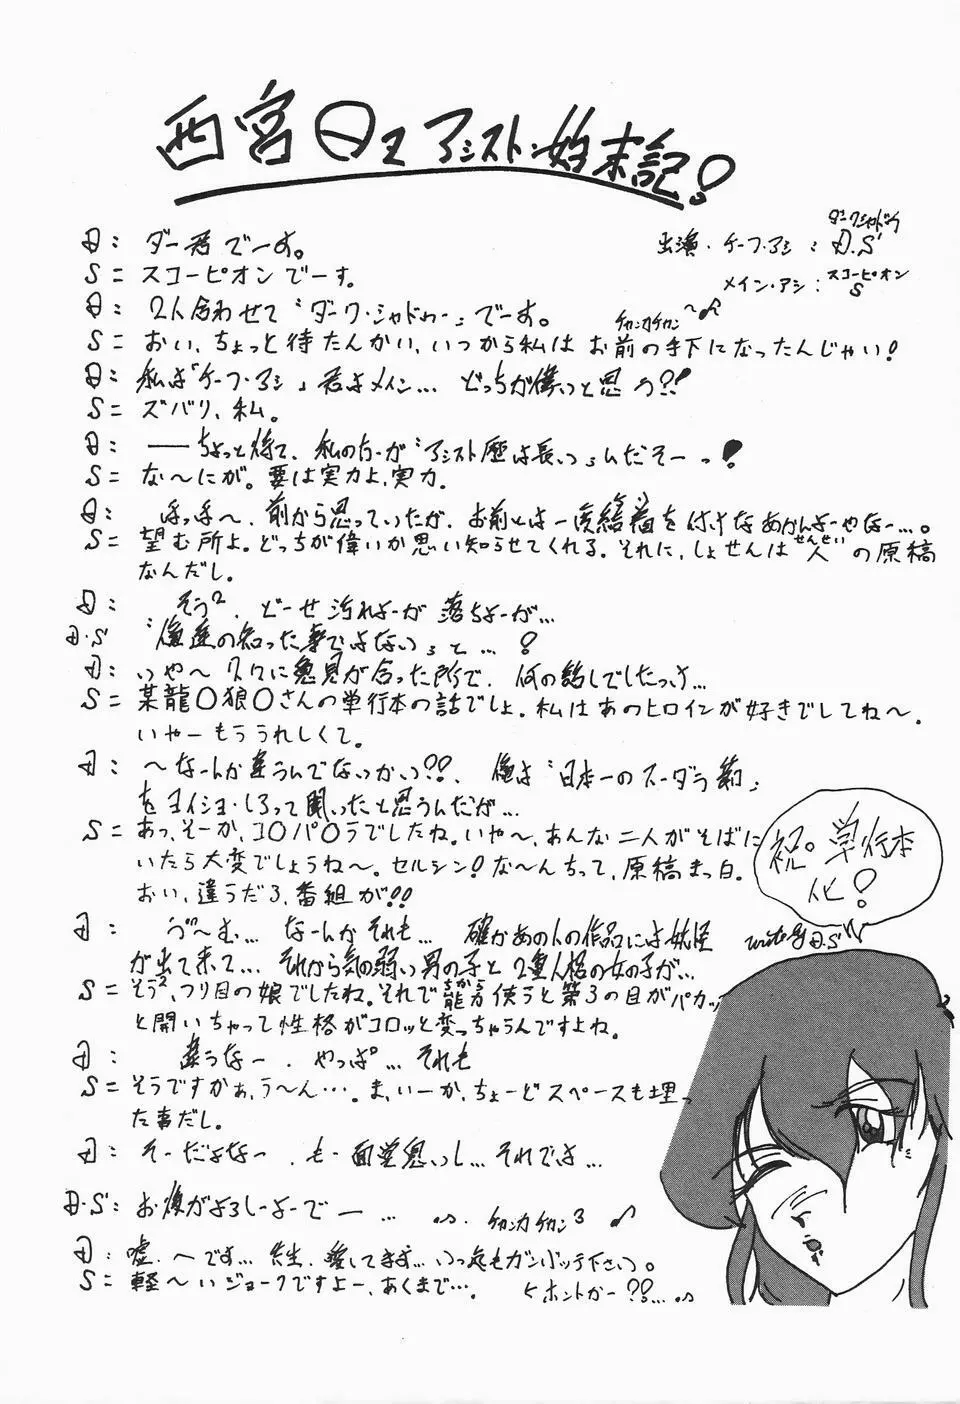 西宮日エ アシスト・始末記!
ダークシャドウ
出演・チーフ・アシ: D.S'
スコーピオン
メイン・アシ: S
D: ダー君でーす。
S= スコーピオンでーす。
D: 2人合わせて『ダーク・シャドゥー』でーす。
チャンカチャカン〜♪
S= おい、ちょっと待たんかい、いつから私はお前の手下になったんじゃい!
D: 私は「チーフ・アシ」君はメイン… どっちが偉いと思う?!
S= ズバリ、私。
D: ――ちょっと待て、私の方が『アシスト歴は長い』んだぞーっ!
S= な〜にが。要は実力よ、実力。
D: ほっほ〜、前から思っていたが、お前とは一度結着をつけなあかんよーやなー…。
S= 望む所よ。どっちが偉いか思い知らせてくれる。それに、しょせんは人(せんせい)の原稿
なんだし。
D: そう²、どーせ汚れよーが落ちよーが…
D・S 『俺達の知った事ではない』と…!
D: いや〜 2人に意見が合った所で、何の話しでしたっけ…
S= 某龍〇狼〇さんの単行本の話でしょ。私はあのヒロインが好きでしてね〜。
いやーもううれしくて。
D: 〜なーんか違うんでないかい??、俺は『日本一のスーダラ節』
をヨイショ・しろって聞いたと思うんだが…
S= あっ、そーか、コ〇パ〇ラでしたね。いや〜、あんな二人がそばに
いたら大変でしょうね〜。セルシン!な〜んちって、原稿まっ白。
おい、違うだろ、番組が!!
D: う〜む… なーんかそれも… 確かあの人の作品には妖怪
が出て来て… それから気の弱い男の子と2重人格の女の子が…
S= そう²、つり目の娘でしたね。それで能力(ちから)使うと第3の目がパカッ
と開いちゃって性格がコロッと変っちゃうんですよね。
D: 違うなー、やっぱ…それも
S= そうですかぁ、う〜ん…。ま、いーか、ちょーどスペースも埋っ
た事だし。
D: そーだよなー、も・面堂臭いし… それでは…
D・S: お後がよろしーよーでー… チャンカチャカン³ ♪
D: 嘘。〜です… 先生、愛してます… いつ迄もガンバッテ下さい。
S= 軽〜いジョークですよー、あくまで…。
ホントかー??…
祝。単行本
化!
write by D.S'